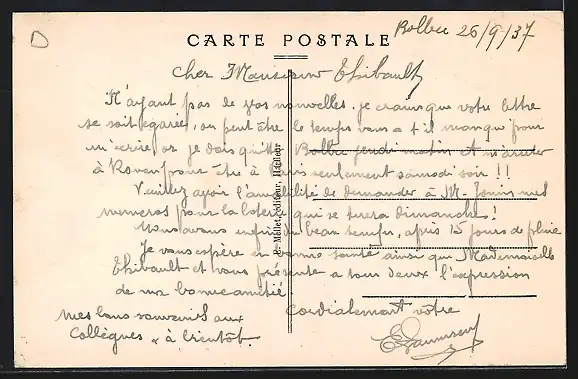 D
CARTE POSTALE
Bolbec 26/9/37
Cher Monsieur Thibault
N'ayant pas de vos nouvelles, je crains que votre lettre
se soit égarée, ou peut être le temps vous a t'il manqué pour
m'écrire, or je dois quitter Bolbec jeudi matin et m'arrêter
à Rouen pour être à Paris seulement samedi soir !!
Veuillez avoir l'amabilité de demander à M. Jouin mes
numéros pour la loterie qui se tirera dimanche !
Nous avons enfin du beau temps, après 15 jours de pluie
Je vous espère en bonne santé ainsi que Mademoiselle
Thibault et vous présente à tous deux l'expression
de ma bonne amitié.
Cordialement vôtre
Mes bons souvenirs aux
Collègues & à bientôt.
Mellet, éditeur,